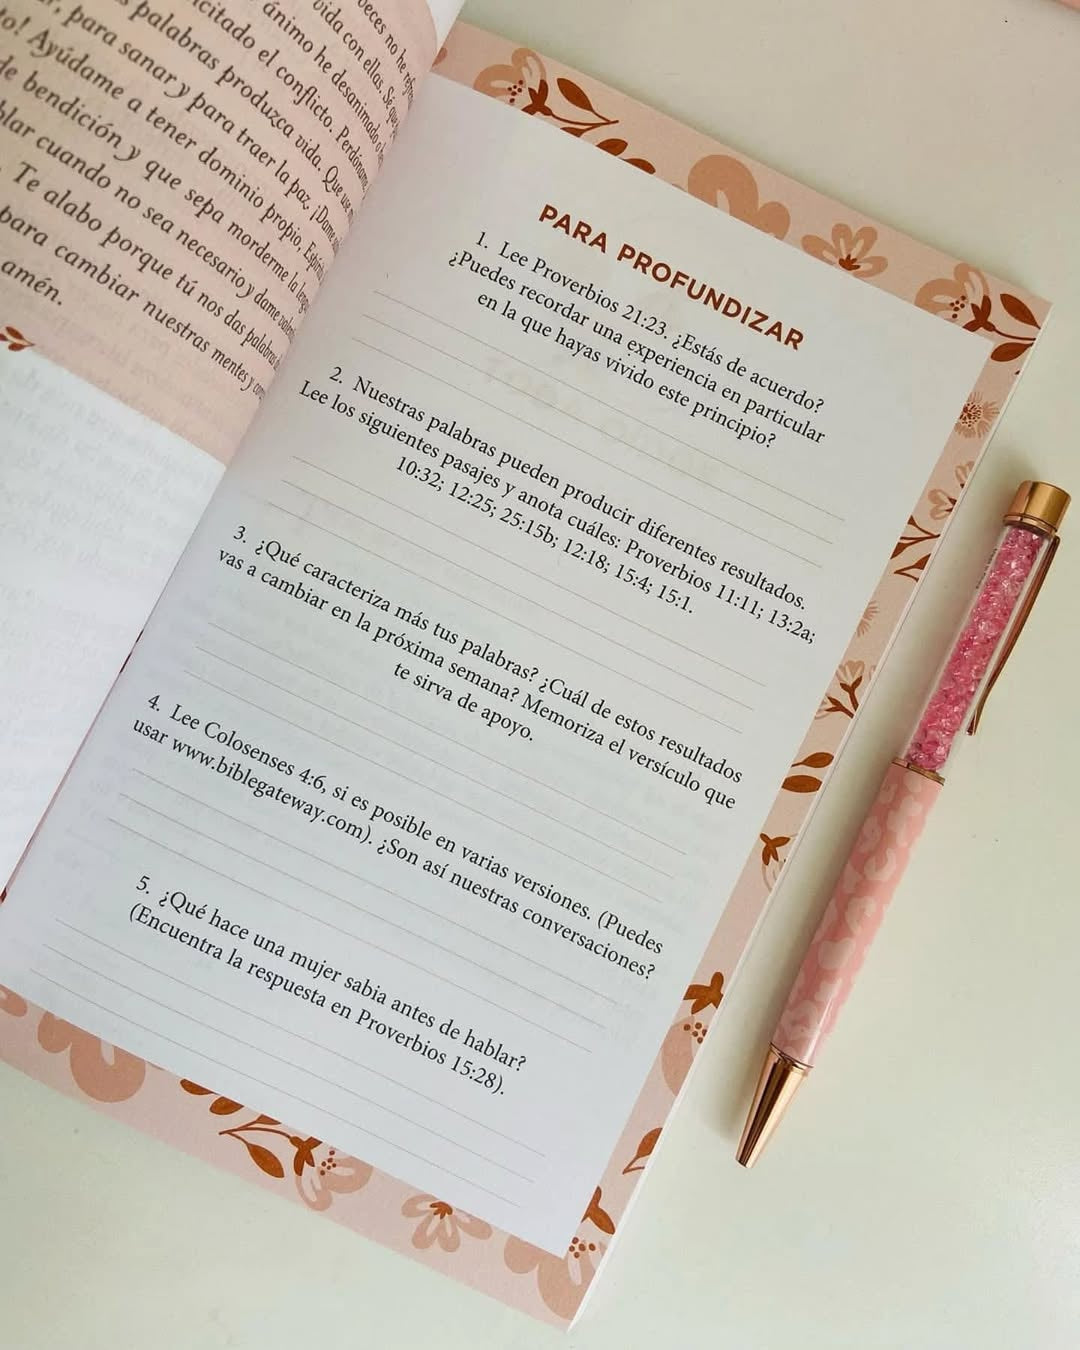 veces no he
vida con ellas. Sé que
citado el conflicto. Perdóname
ánimo he desanimado
palabras produzca vida. Que use
para sanar y para traer la paz. ¡Dame
to! Ayúdame a tener dominio propio,
de bendición y que sepa morderme la lengua
blar cuando no sea necesario y dame
Te alabo porque tú nos das palabras
para cambiar nuestras mentes y
amén.
PARA PROFUNDIZAR
1. Lee Proverbios 21:23. ¿Estás de acuerdo?
¿Puedes recordar una experiencia en particular
en la que hayas vivido este principio?
2. Nuestras palabras pueden producir diferentes resultados.
Lee los siguientes pasajes y anota cuáles: Proverbios 11:11; 13:2a;
10:32; 12:25; 25:15b; 12:18; 15:4; 15:1.
3. ¿Qué caracteriza más tus palabras? ¿Cuál de estos resultados
vas a cambiar en la próxima semana? Memoriza el versículo que
te sirva de apoyo.
4. Lee Colosenses 4:6, si es posible en varias versiones. (Puedes
usar www.biblegateway.com). ¿Son así nuestras conversaciones?
5. ¿Qué hace una mujer sabia antes de hablar?
(Encuentra la respuesta en Proverbios 15:28).